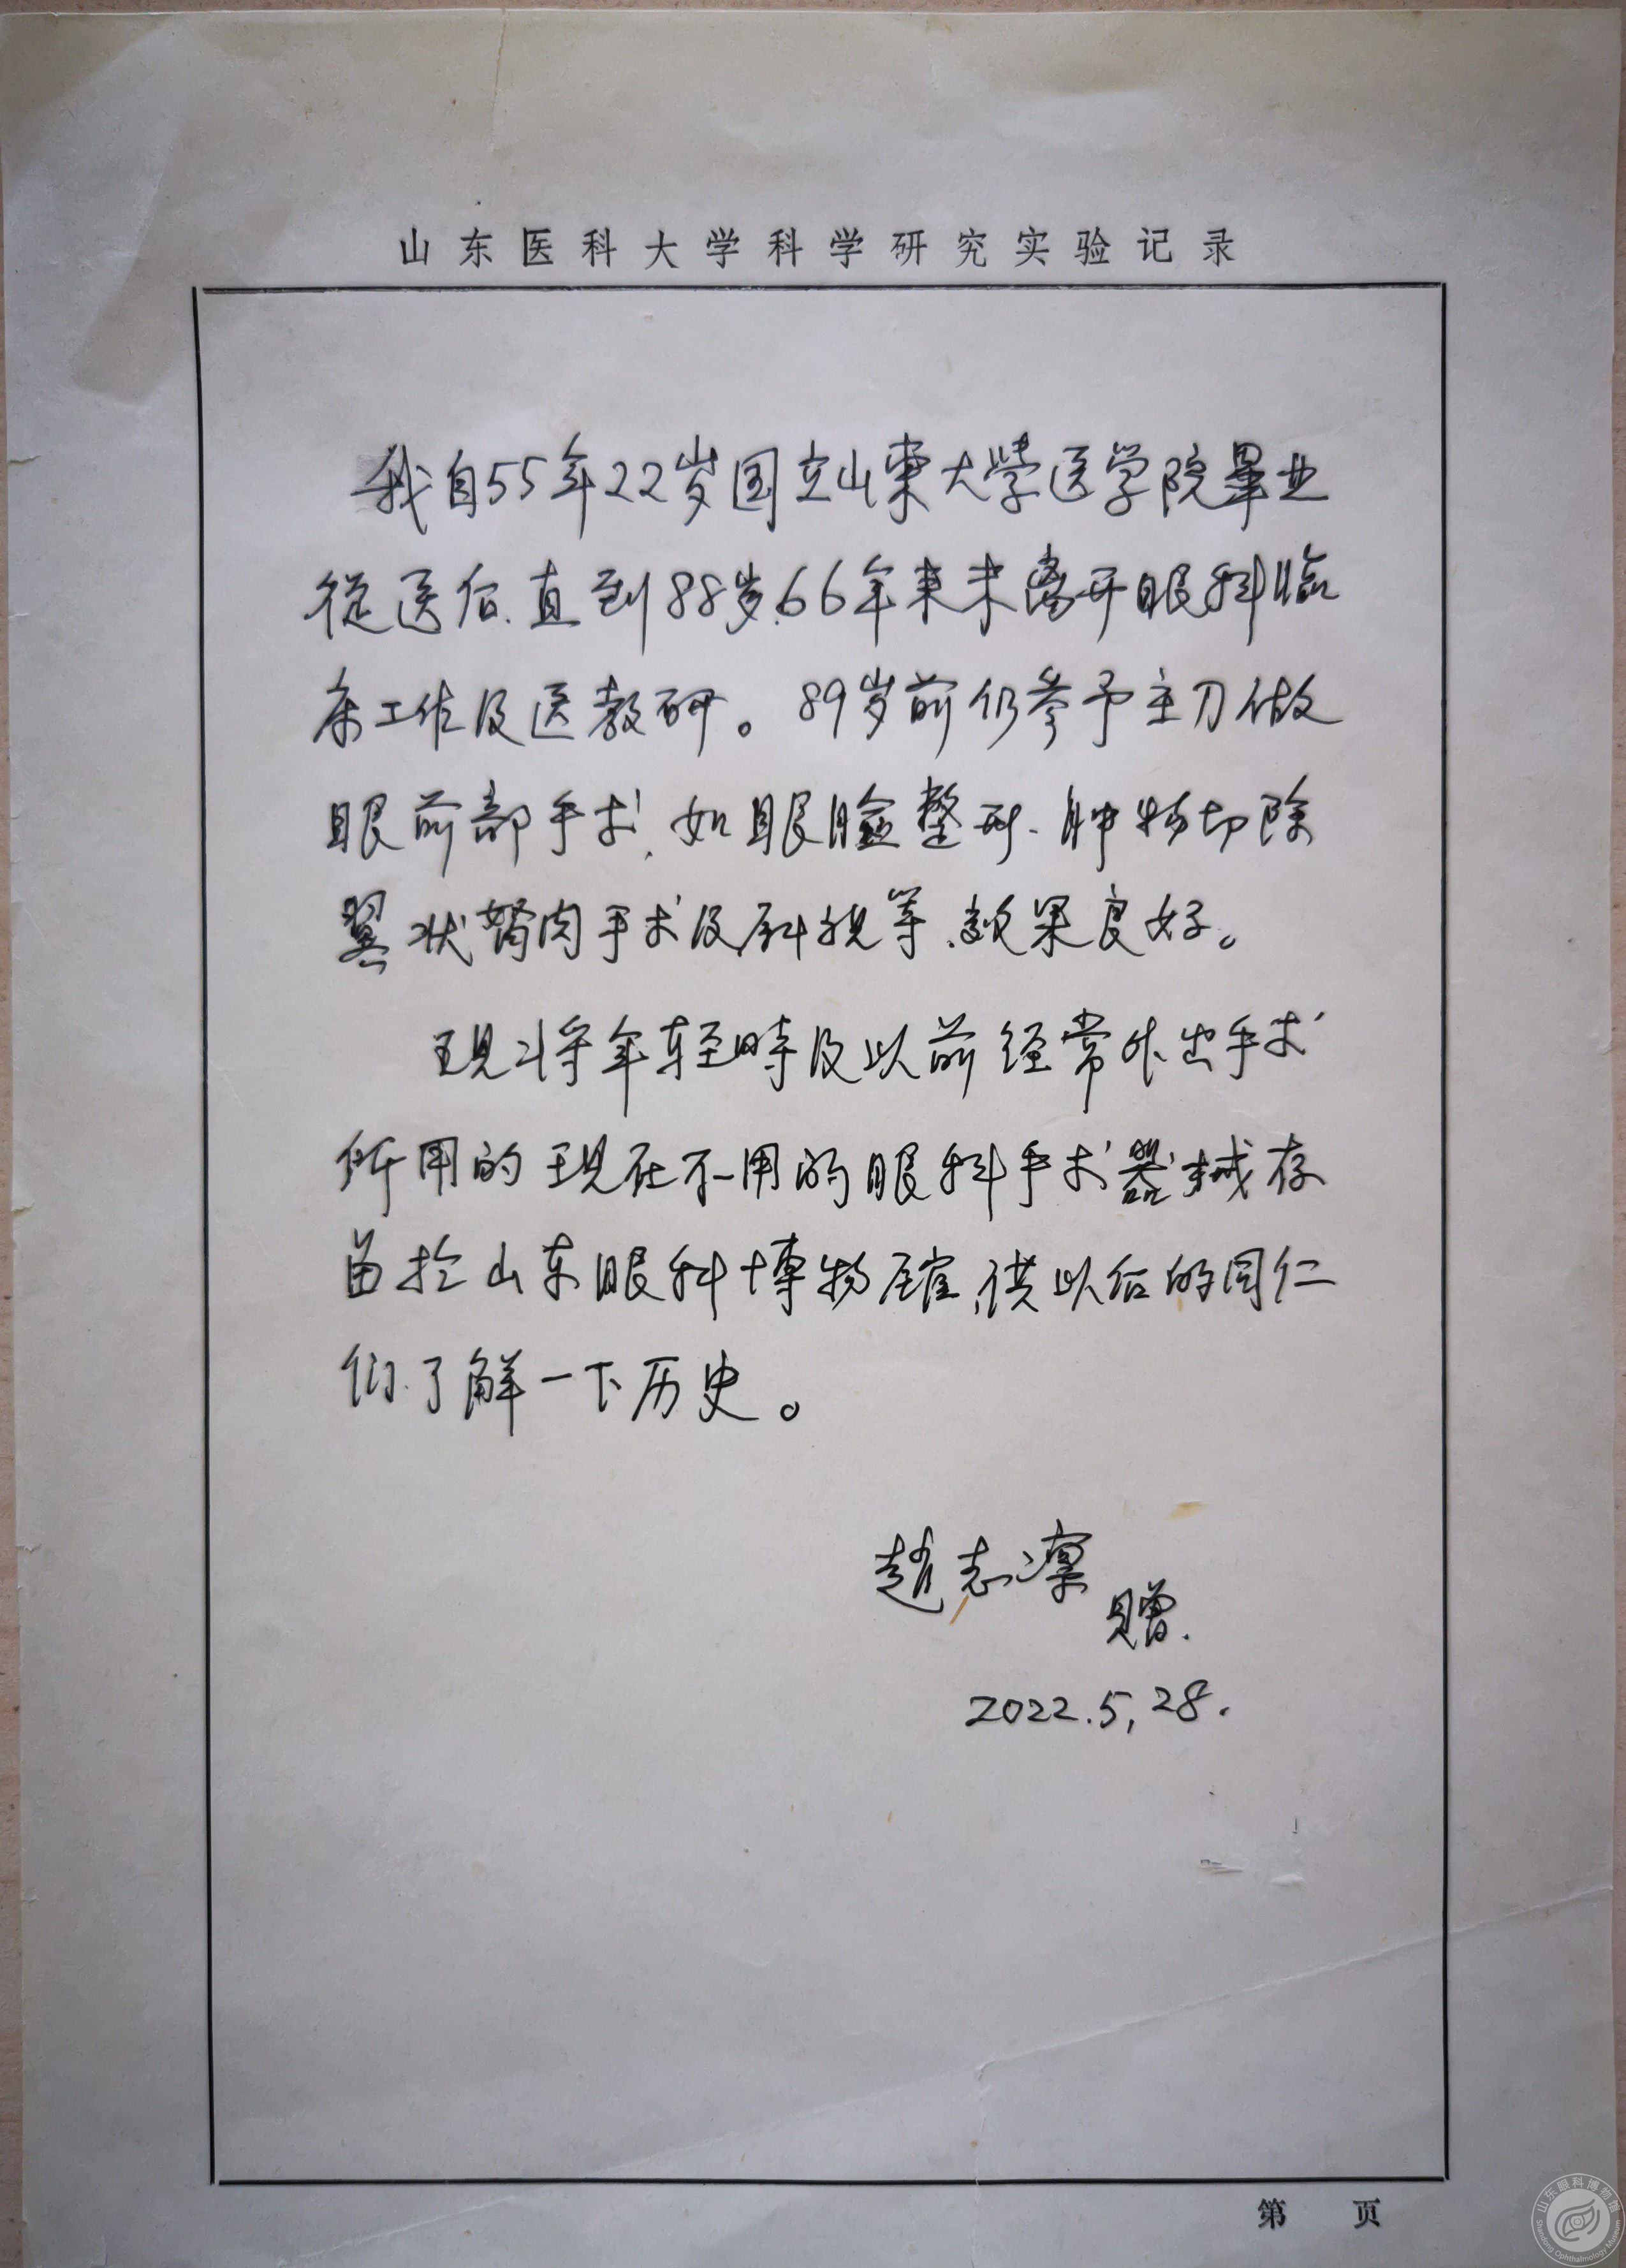 山东医科大学科学研究实验记录
我自55年22岁国立山東大学医学院畢业
從医后、直到88岁、66年来未离开眼科临
床工作及医教研。89岁前仍参予主刀做
眼前部手术,如眼瞼整形、肿物切除
翼状胬肉手术及斜视等、效果良好。
現将年轻時及以前经常外出手术
所用的現在不用的眼科手术器械存
留於山东眼科博物館,供以后的同仁
们了解一下历史。
趙志凛
贈.
2022.5,28.
第 页
山东眼科博物馆
Shandong Ophthalmology Museum